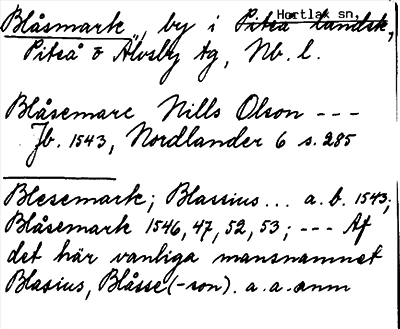 Hortlax sn.
Blåsmark, by i Piteå landsk,
Piteå & Älvsby tg, Nb. l.
Blåsemarc Nills Olson ---
Jb. 1543, Nordlander 6 s. 285
Blesemark; Blassius... a. b. 1543;
Blåsemark 1546, 47, 52, 53; --- Af
det här vanliga mansnamnet
Blasius, Blåsse (-son). a. a. anm